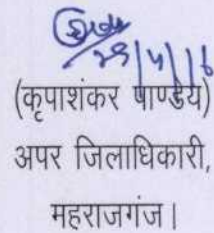 (कृपाशंकर पाण्डेय)
अपर जिलाधिकारी,
महराजगंज।